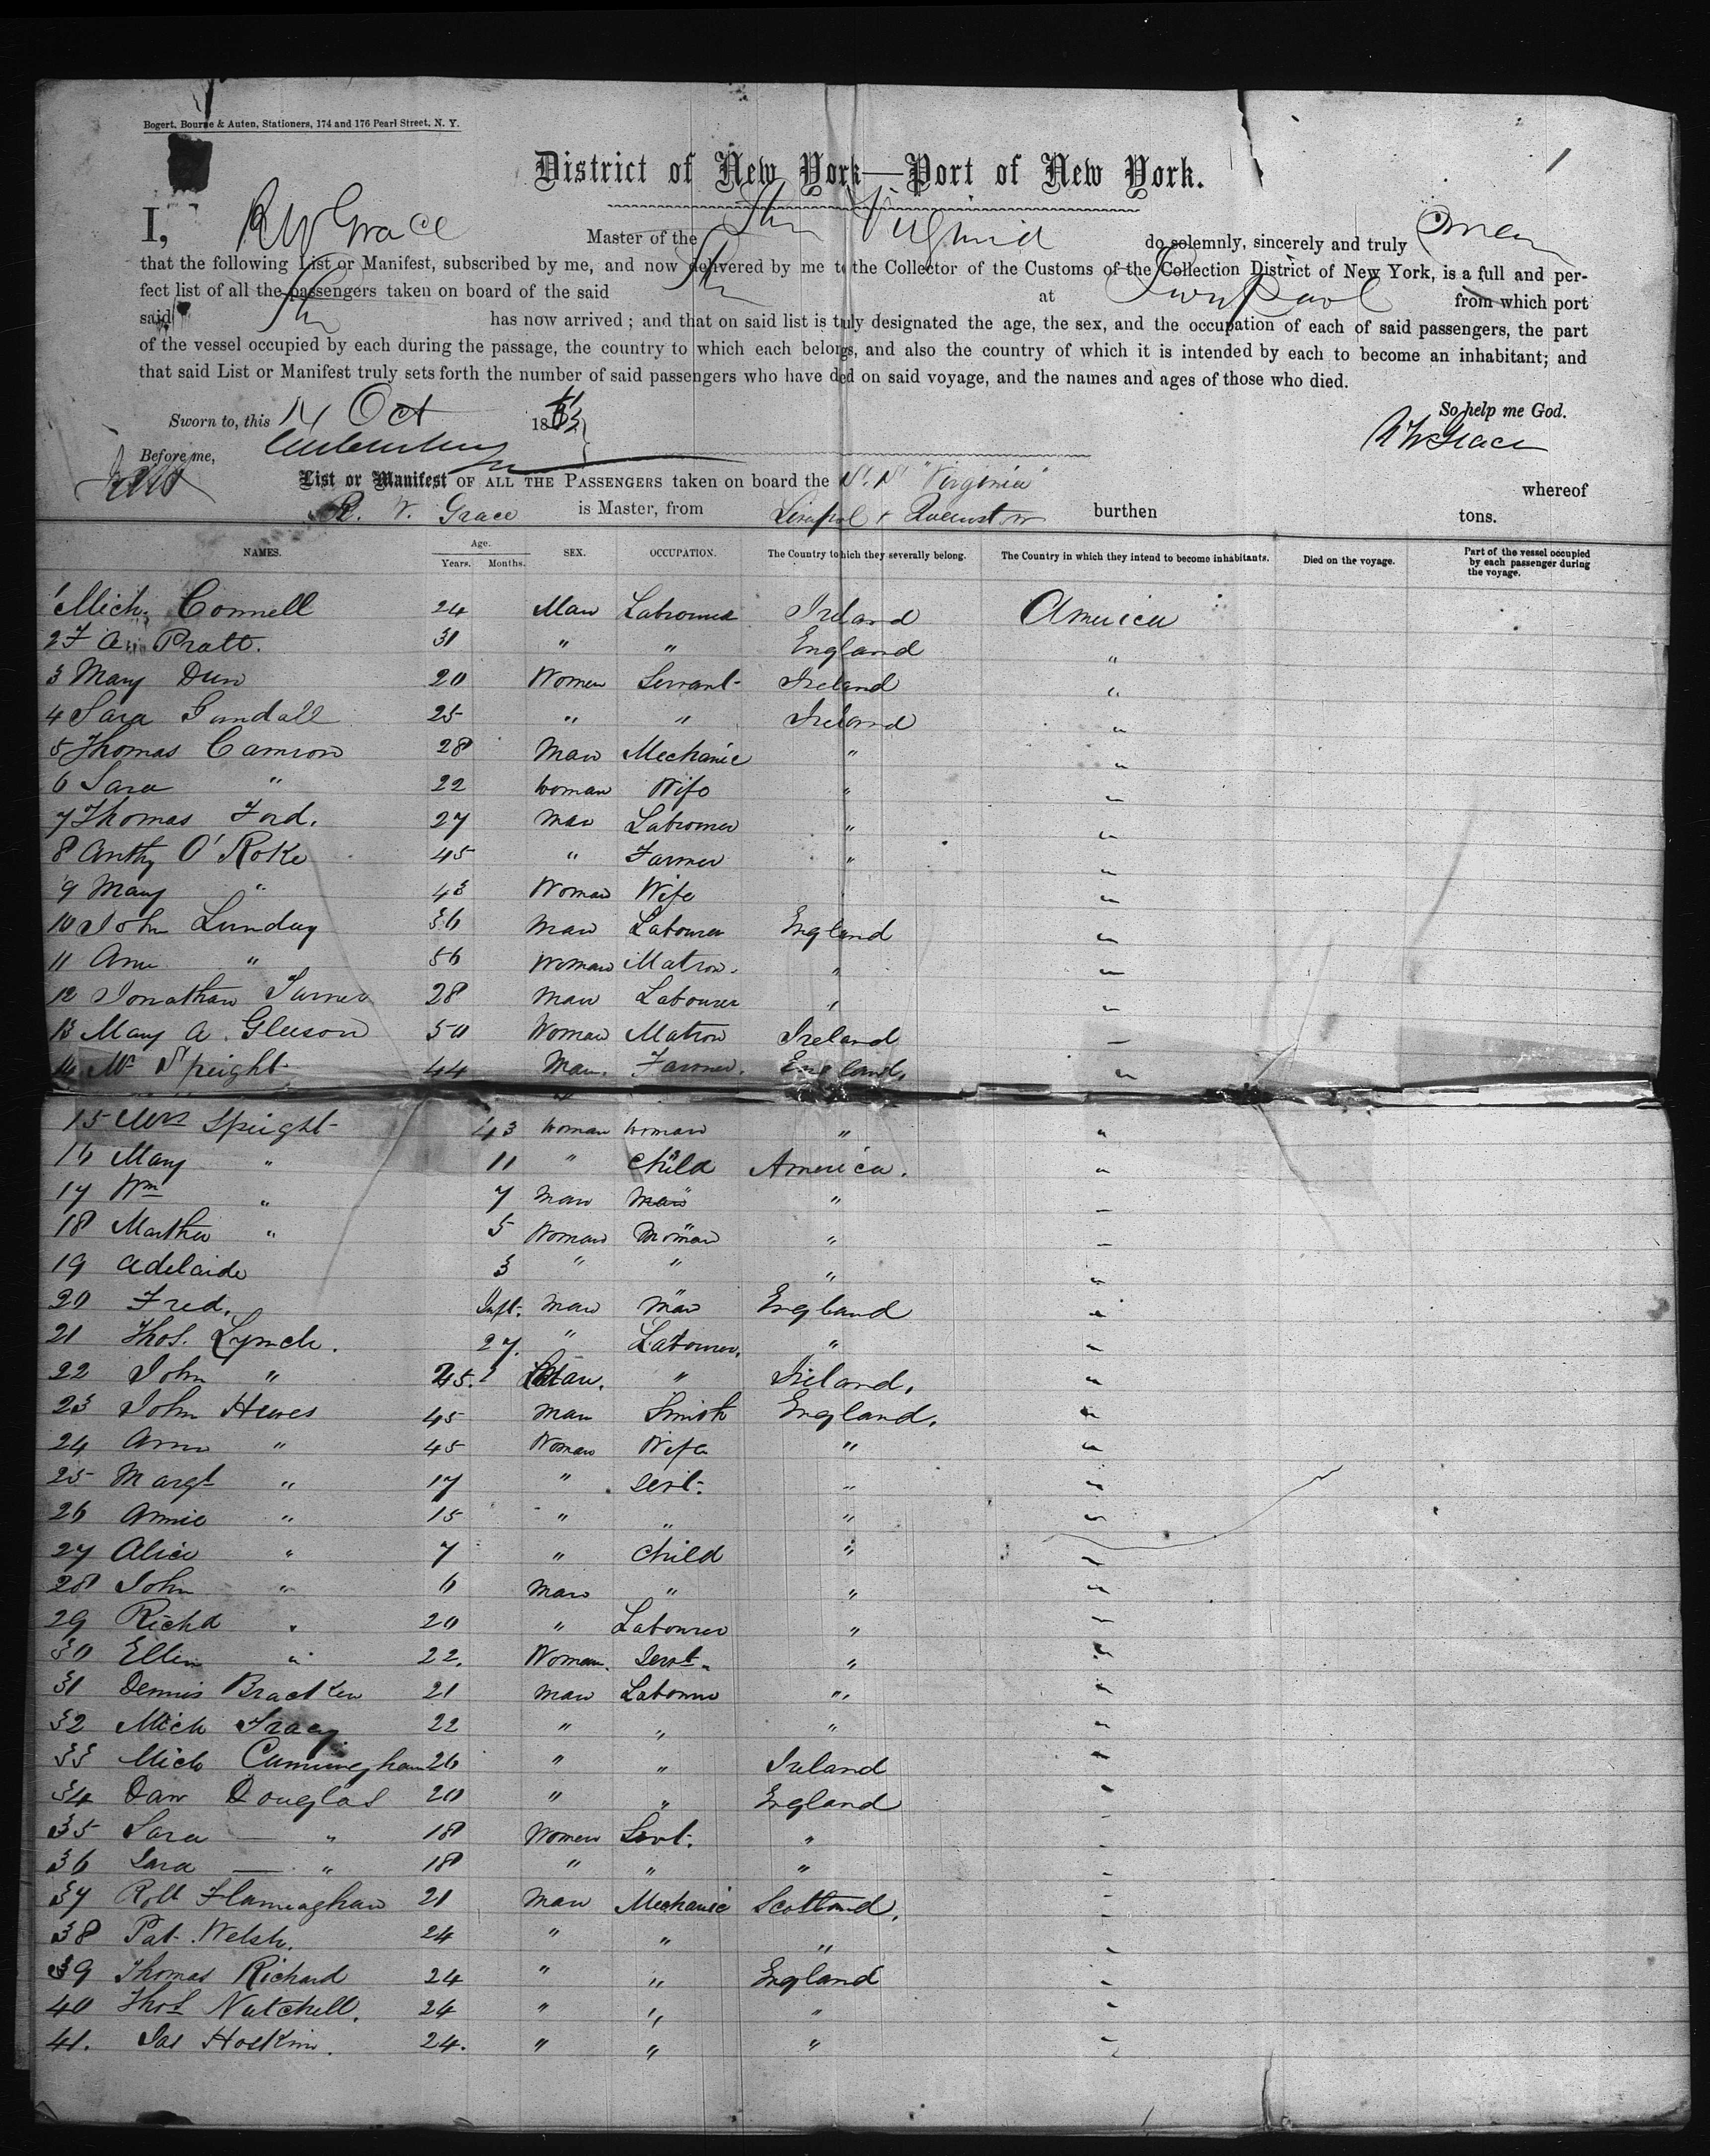 Bogert, Bourne & Auten, Stationers, 174 and 176 Pearl Street, N. Y.
1
District of New York—Port of New York.
I, R W Grace Master of the Virginia do solemnly, sincerely and truly
that the following List or Manifest, subscribed by me, and now delivered by me to the Collector of the Customs of the Collection District of New York, is a full and per-
fect list of all the passengers taken on board of the said at Liverpool from which port
said has now arrived; and that on said list is truly designated the age, the sex, and the occupation of each of said passengers, the part
of the vessel occupied by each during the passage, the country to which each belongs, and also the country of which it is intended by each to become an inhabitant; and
that said List or Manifest truly sets forth the number of said passengers who have died on said voyage, and the names and ages of those who died.
So help me God.
Sworn to, this Oct 18
R W Grace
Before me,
List or Manifest OF ALL THE PASSENGERS taken on board the S. S. "Virginia" whereof
R. W. Grace is Master, from Liverpool & Queenstown burthen tons.
NAMES. Age. Years. Months. SEX. OCCUPATION. The Country to which they severally belong. The Country in which they intend to become inhabitants. Died on the voyage. Part of the vessel occupied by each passenger during the voyage.
1 Mich. Connell 24 Man Labourer Ireland America
2 F A Pratt. 31 " " England "
3 Mary Dun 20 Women Servant Ireland "
4 Sara Gundall 25 " " Ireland "
5 Thomas Camron 28 Man Mechanic " "
6 Sara " 22 Woman Wife " "
7 Thomas Ford. 27 Man Labourer " "
8 Anthy O'Roke 45 " Farmer " "
9 Mary " 43 Woman Wife "
10 John Lunday 36 Man Labourer England "
11 Ann " 56 Woman Matron. " "
12 Jonathan Turner 28 Man Labourer " "
13 Mary A. Gleeson 50 Woman Matron Ireland "
14 Mr Speight 44 Man. Farmer. England. "
15 Mrs Speight 43 Woman Woman " "
16 Mary " 11 " Child America. "
17 Wm " 7 Man Man " "
18 Martha " 5 Woman Woman " "
19 Adelaide 3 " " " "
20 Fred. Inft. Man Man England "
21 Thos. Lynch. 27. " Labourer. " "
22 John " 45. Man. " Ireland. "
23 John Hewes 45 Man Smith England. "
24 Ann " 45 Woman Wife " "
25 Margt " 17 " Servt. " "
26 Annie " 15 " " " "
27 Alice " 7 " Child " "
28 John " 6 Man " " "
29 Richd " 20 " Labourer " "
30 Ellen " 22. Woman. Servt. " "
31 Dennis Bracken 21 Man Labourer " "
32 Mich Tracy 22 " " " "
33 Mich Cunningham 26 " " Ireland "
34 Dan Douglas 20 " " England "
35 Sara — " 18 Women Servt. " "
36 Sara — " 18 " " " "
37 Robt Flannaghan 21 Man Mechanic Scotland. "
38 Pat Welsh. 24 " " " "
39 Thomas Richard 24 " " England "
40 Thos Nutchell. 24 " " " "
41. Jas Hoskin. 24. " " " "